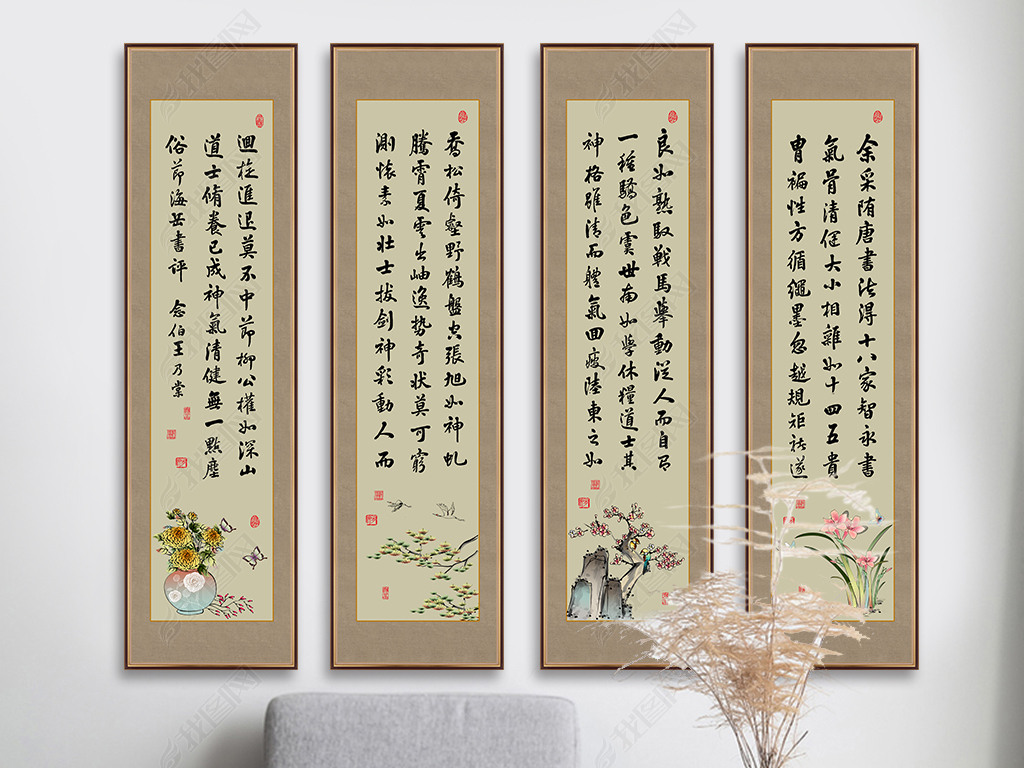 余采隋唐書法得十八家智永書
氣骨清健大小相雜如十四五貴
胄褊性方循繩墨忽越規矩褚遂
良如熟馭戰馬舉動從人而自有
一種驕色虞世南如學休糧道士其
神格雖清而體氣回疲陸東之如
喬松倚壑野鶴盤空張旭如神虬
騰霄夏雲出岫逸勢奇狀莫可窮
測懷素如壯士拔劍神彩動人而
迴旋進退莫不中節柳公權如深山
道士脩養已成神氣清健無一點塵
俗節海岳書評 念伯王乃棠